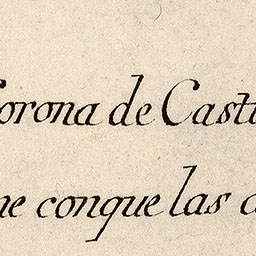 Corona de Casti
ne conque las